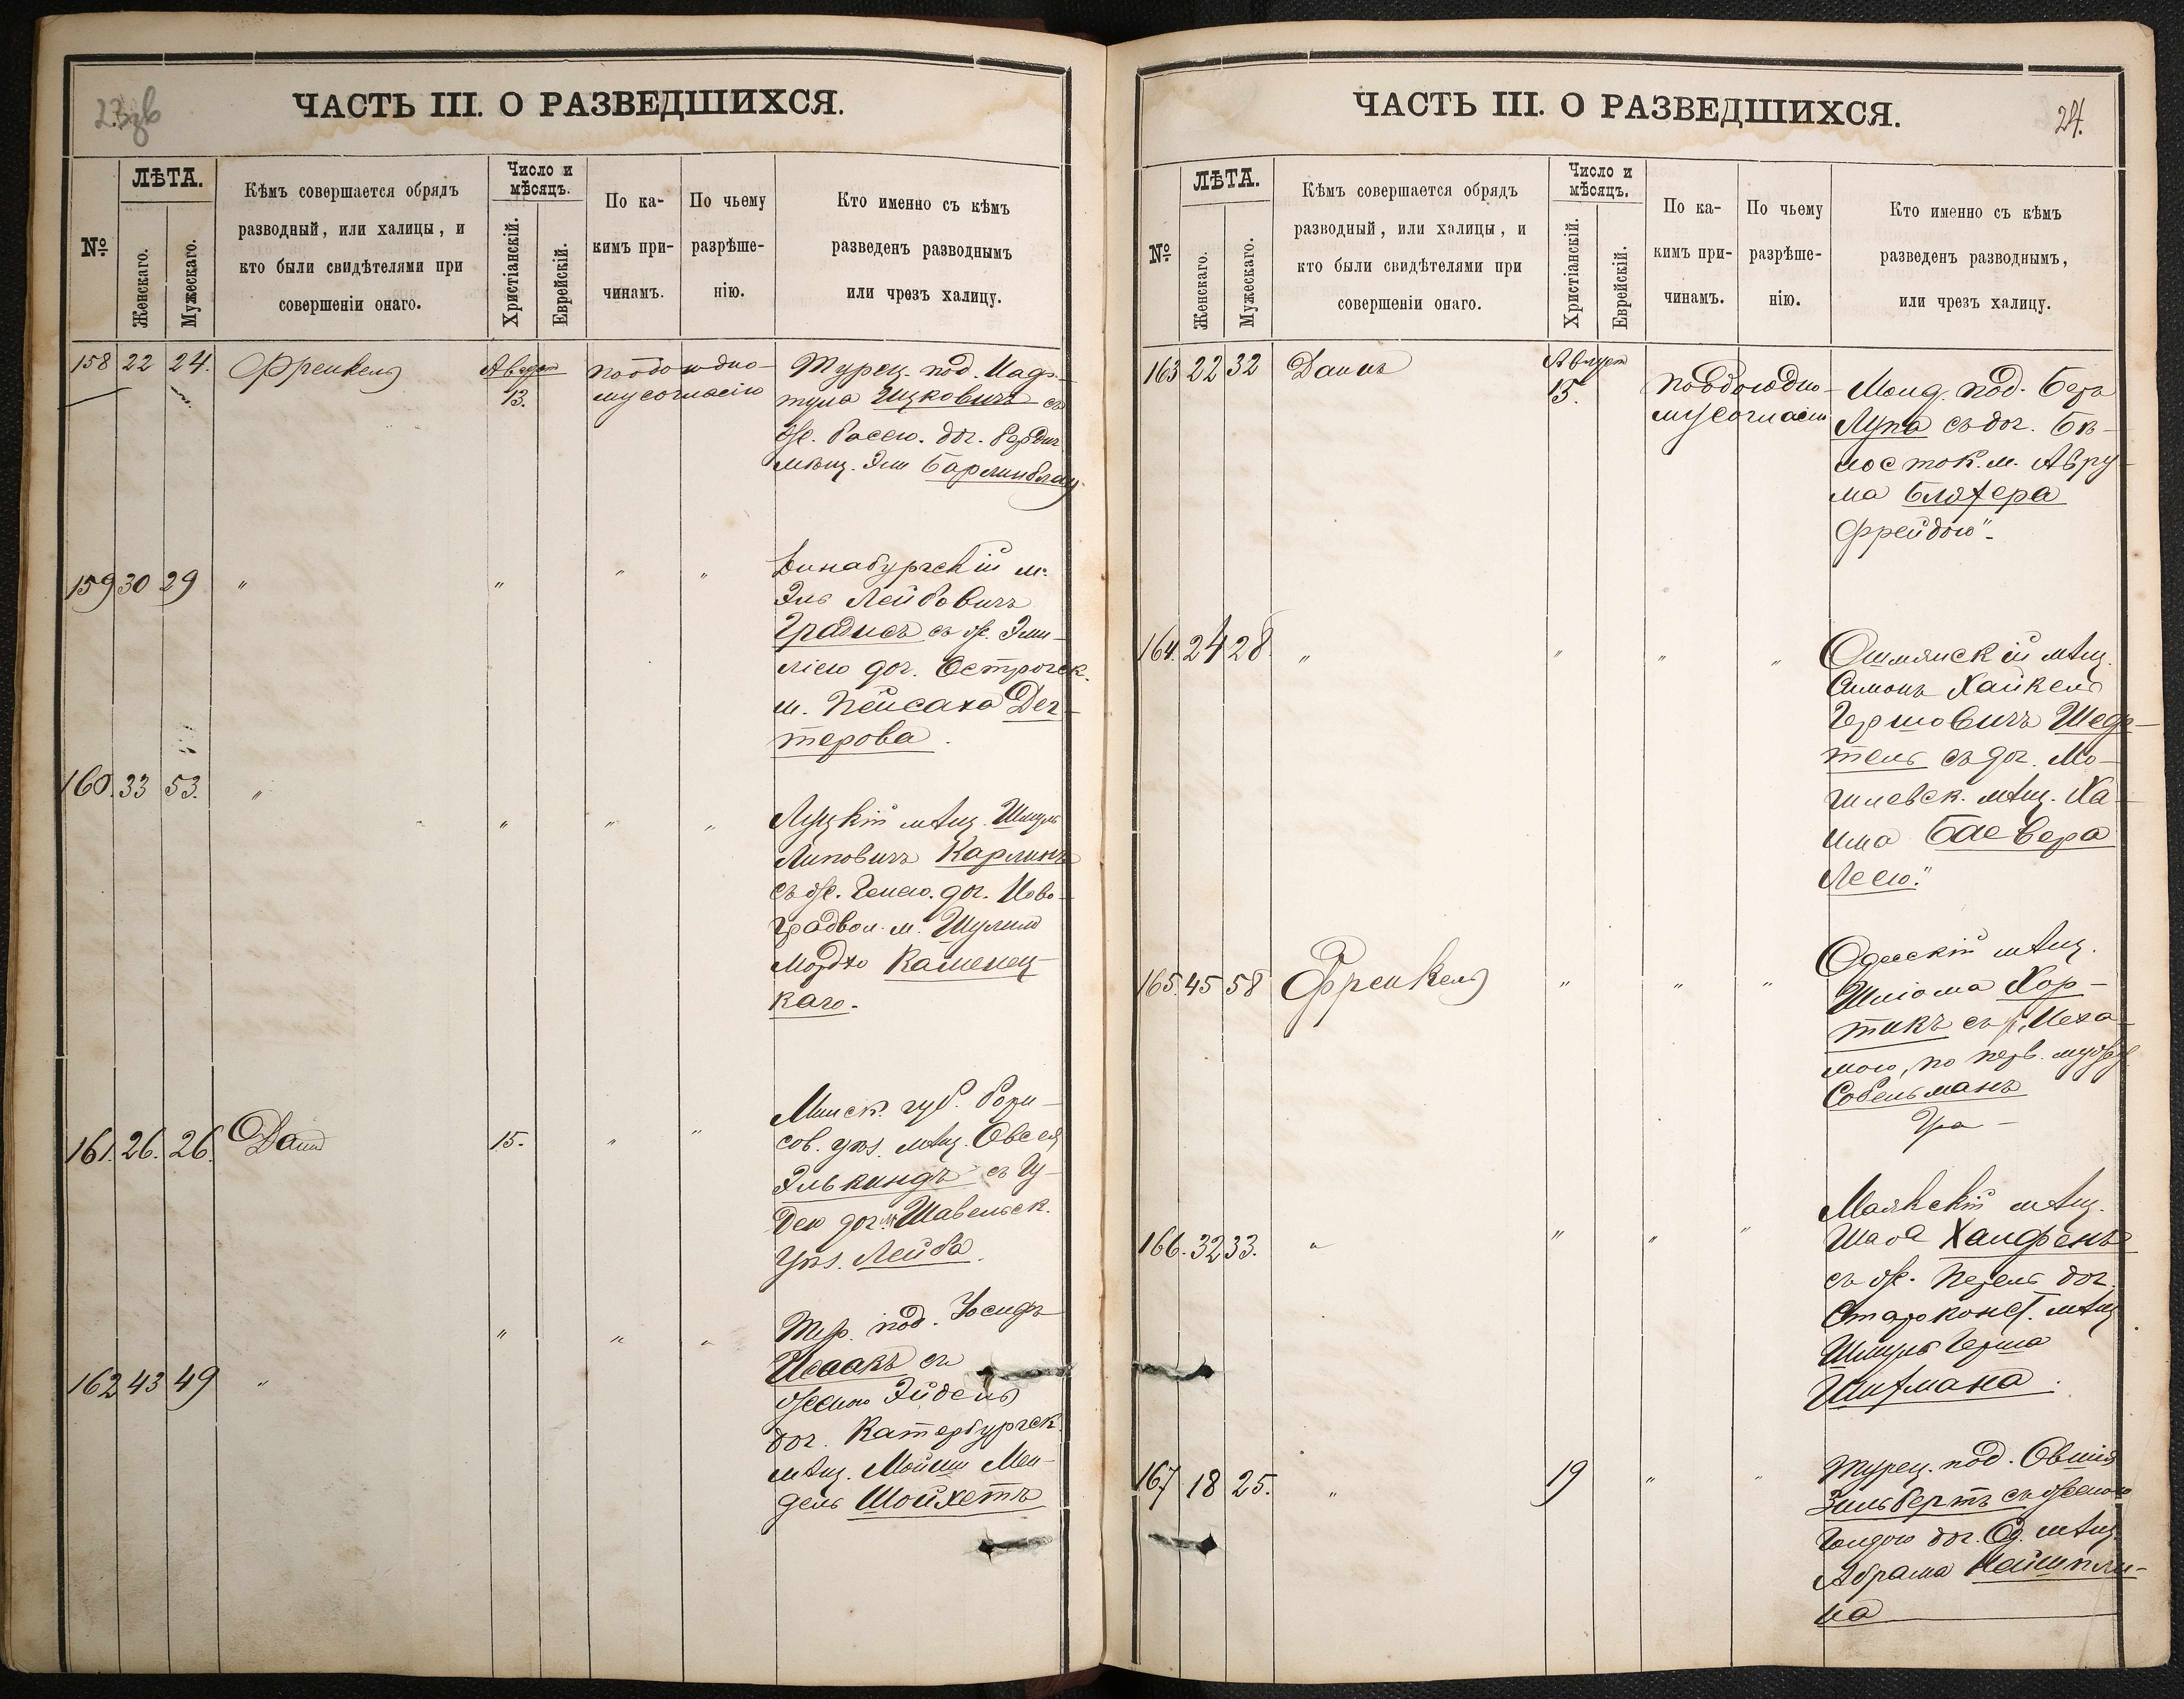 23 зв
ЧАСТЬ III. О РАЗВЕДШИХСЯ.
№
ЛѢТА.
Женскаго.
Мужескаго.
Кѣмъ совершается обрядъ
разводный, или халицы, и
кто были свидѣтелями при
совершеніи онаго.
Число и
мѣсяцъ.
Христіанскій.
Еврейскій.
По ка-
кимъ при-
чинамъ.
По чьему
разрѣше-
нію.
Кто именно съ кѣмъ
разведенъ разводнымъ
или чрезъ халицу.
158 22 24. Френкель Август 13.
Турец. под.
Ицковичъ съ
же. Басею. доч. Бердич
мѣщ.
159 30 29 " " " "
Динабургскій м.
Эль Лейбовичъ
съ же. Эми-
ліею доч. Острогск.
м. Пейсаха Дех-
терова.
160. 33 53. " " " "
Луцкій мѣщ. Шмуль
Липовичъ Карлинъ
съ же. Генею. доч. Ново-
градвол. м. Шулима
Мордхо Каменец-
каго.
161. 26. 26. Данъ 15. " "
Минск. губ. Бори-
сов. уѣз. мѣщ. Овсей
Элькиндъ съ Гу-
дею доч. м. Шавельск.
уѣз. Лейба.
162 43 49 " " " "
Тур. под. Іосифъ
Исаакъ съ
женою Эйдель
доч. Катербургск.
мѣщ. Мойши Мен-
дель Шойхетъ
24.
ЧАСТЬ III. О РАЗВЕДШИХСЯ.
№
ЛѢТА.
Женскаго.
Мужескаго.
Кѣмъ совершается обрядъ
разводный, или халицы, и
кто были свидѣтелями при
совершеніи онаго.
Число и
мѣсяцъ.
Христіанскій.
Еврейскій.
По ка-
кимъ при-
чинамъ.
По чьему
разрѣше-
нію.
Кто именно съ кѣмъ
разведенъ разводнымъ,
или чрезъ халицу.
163 22 32 Данъ Август 15.
Молд. под. Беръ
Лупа съ доч. Бѣ-
лосток. м. Авру-
ма Бляхера
Фрейдою".
164. 24 28. " " " "
Ошмянскій мѣщ.
Симонъ Хайкель
Гершовичъ Шедр-
тель съ доч. Мо-
гилевск. мѣщ. Ха-
има Баевера
Леею."
165. 45 58 Френкель " " "
Одесскій мѣщ.
Шліома Хор-
тикъ съ ж. Неха-
мою, по перв. мужу
Собельманъ
166. 32 33. " " " "
Маякскій мѣщ.
Шаа Халфенъ
съ же. Перель доч.
Староконст. мѣщ
Шмуль Герша
167 18 25. " 19 " "
Турец. под. Овшія
Зильбертъ съ женою
Голдою доч. Од. мѣщ.
Абрама
на